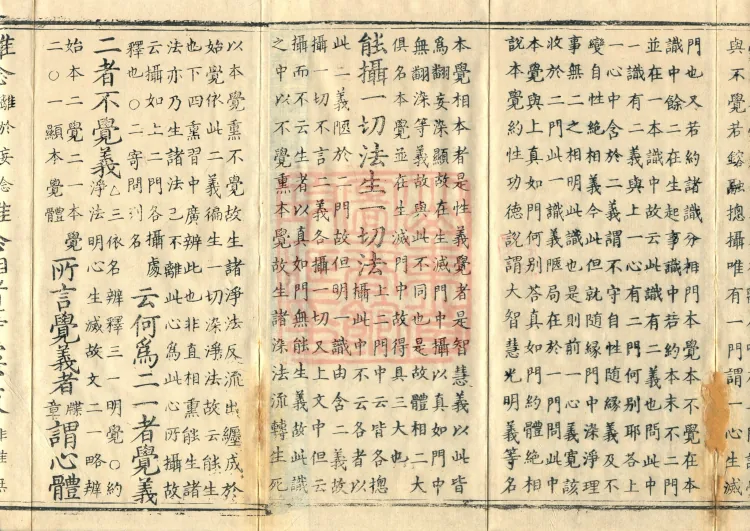 與不覺若鎔融總攝唯有一門謂一心生滅
門也又若約諸識分相門本覺不覺在本
識中餘二在生起事識中若約本末不二門
並在一本識中故云此識有二義也問此中
一識有二義與上一心有二門何別耶答上
一心中含於二義謂不守自性隨緣義及不
變自性絕相義今此但就隨緣門中染淨理
事無二之相明此識也是則前一心義寬該
收於二門此一識義陿局在於一門問此中
本覺與上真如門何別答真如門約體絕相
說本覺約性功德說謂大智慧光明義等名
本覺相本者是性義覺者是智慧義以此皆
為翻妄染顯故在生滅門中攝以真如門中
無翻染等義故與此不同也是故體相二大
俱名本覺並在生滅門中故得具三大也
能攝一切法生一切法上二門中云皆各總
攝此中不云各者以
此二義陿於二門故但明一識由含二義故
攝一切不言二義各攝一切又上文中但云
攝而不云生者以真如門無能生義故此識
之中以不覺熏本覺故生諸染法流轉生死
以本覺熏不覺故生諸淨法反流出纏成於
始覺依此二義徧生一切染淨法故云能生
也下四熏習中廣辨此也非直相熏能生諸
法亦乃生諸法已不離此心為此心所攝故
云攝如上二門各攝處
釋也〇二寄問列名云何為二一者覺義
二者不覺義△三依名辨釋三一明覺〇約
淨法明心生滅故文二一略辨
始本二覺二一本覺
二〇一顯本覺體所言覺義者牒章謂心體
離念離於妄念